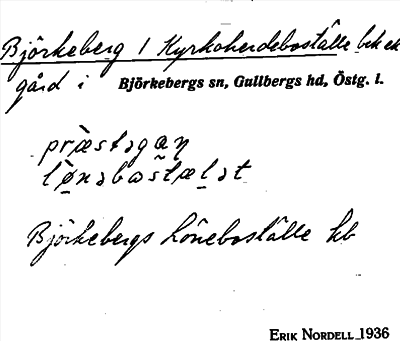 Björkeberg 1 Kyrkoherdeboställe bebek
gård i Björkebergs sn, Gullbergs hd, Östg. l.
præstəgaṇ
lø̀nəbostælət
Björkebergs Löneboställe kb
ERIK NORDELL 1936